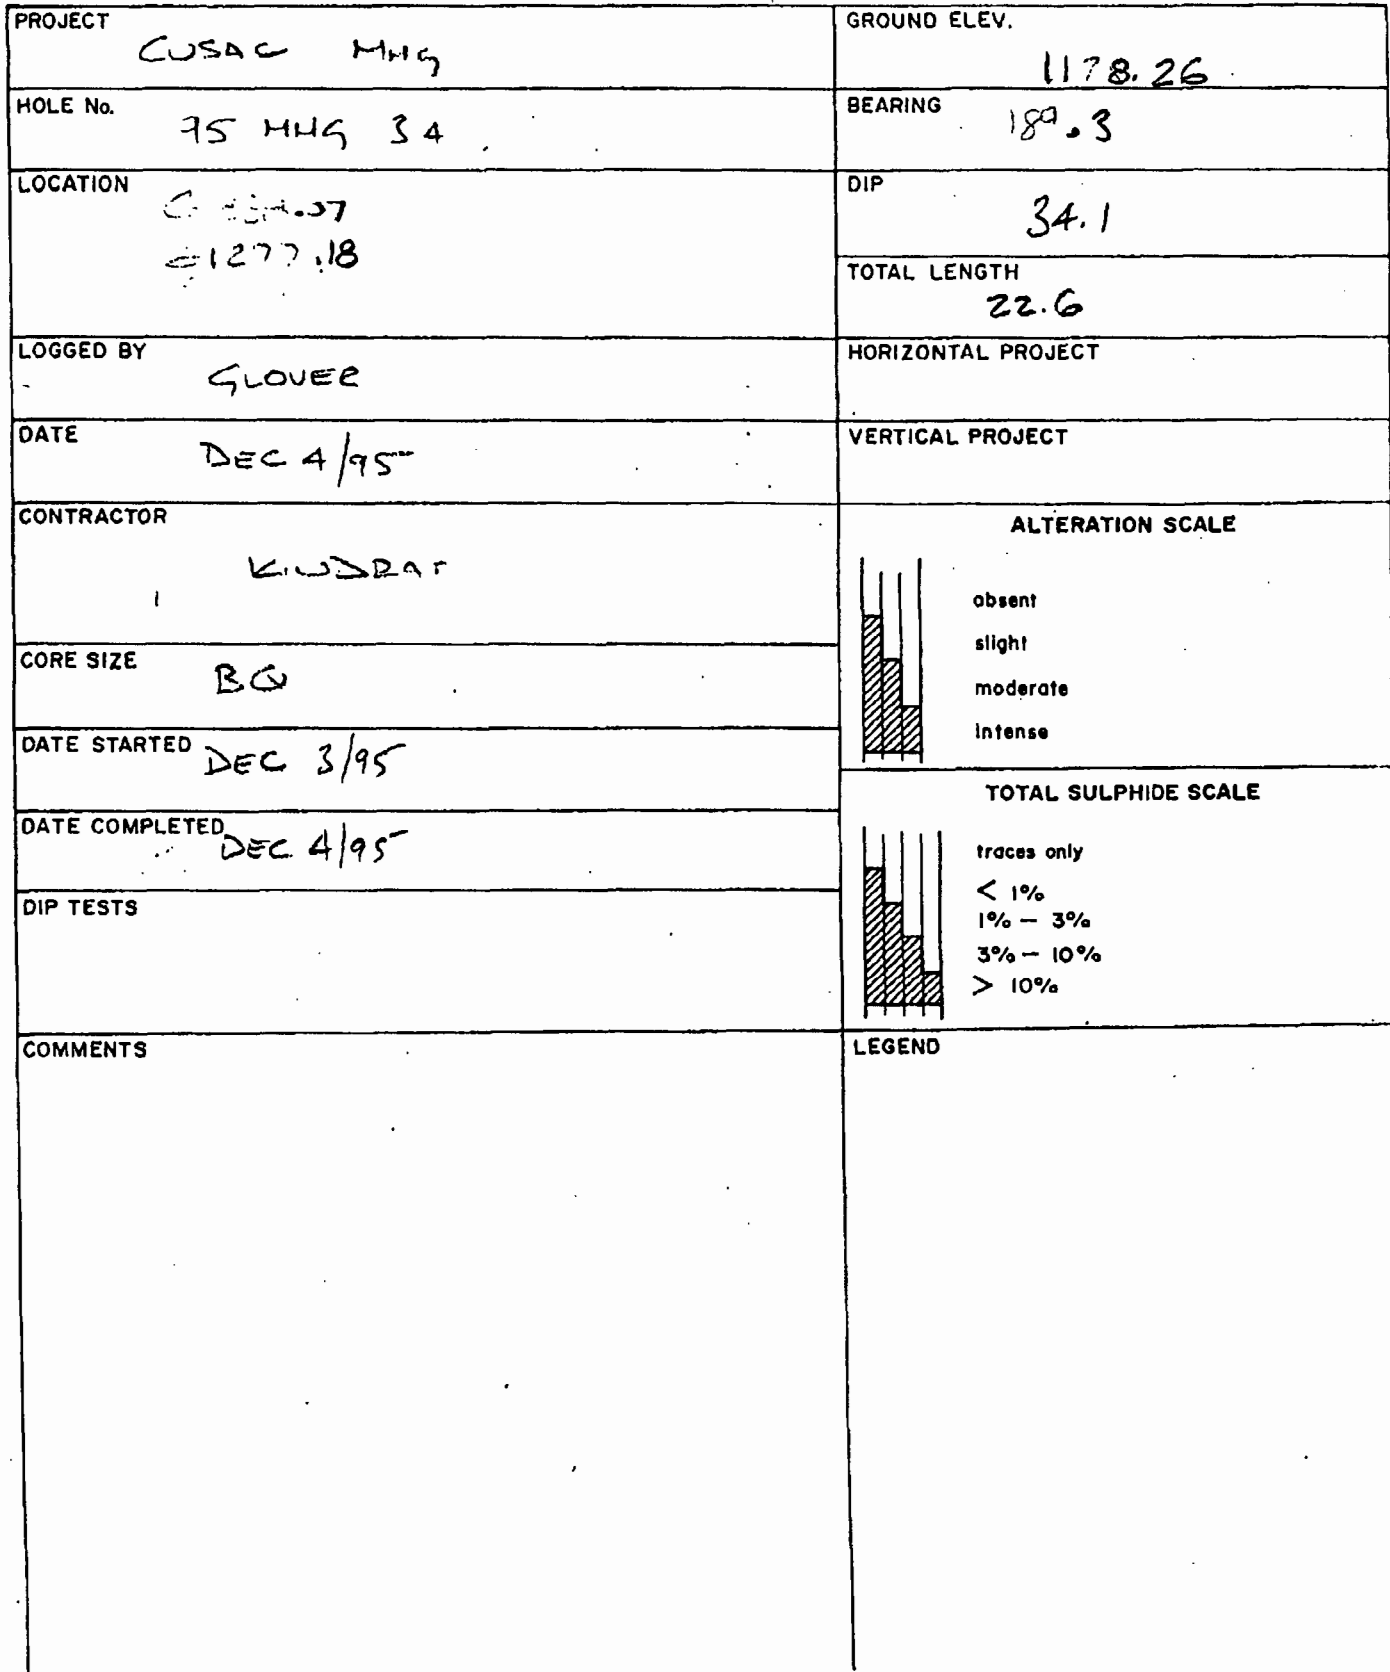 PROJECT
CUSAC MHG
HOLE No.
95 MHG 34
LOCATION
1277.18
LOGGED BY
GLOVER
DATE
DEC 4/95
CONTRACTOR
KINDRAT
CORE SIZE
BQ
DATE STARTED
DEC 3/95
DATE COMPLETED
DEC 4/95
DIP TESTS
COMMENTS
GROUND ELEV.
1178.26
BEARING
189.3
DIP
34.1
TOTAL LENGTH
22.6
HORIZONTAL PROJECT
VERTICAL PROJECT
ALTERATION SCALE
absent
slight
moderate
intense
TOTAL SULPHIDE SCALE
traces only
< 1%
1% — 3%
3% — 10%
> 10%
LEGEND